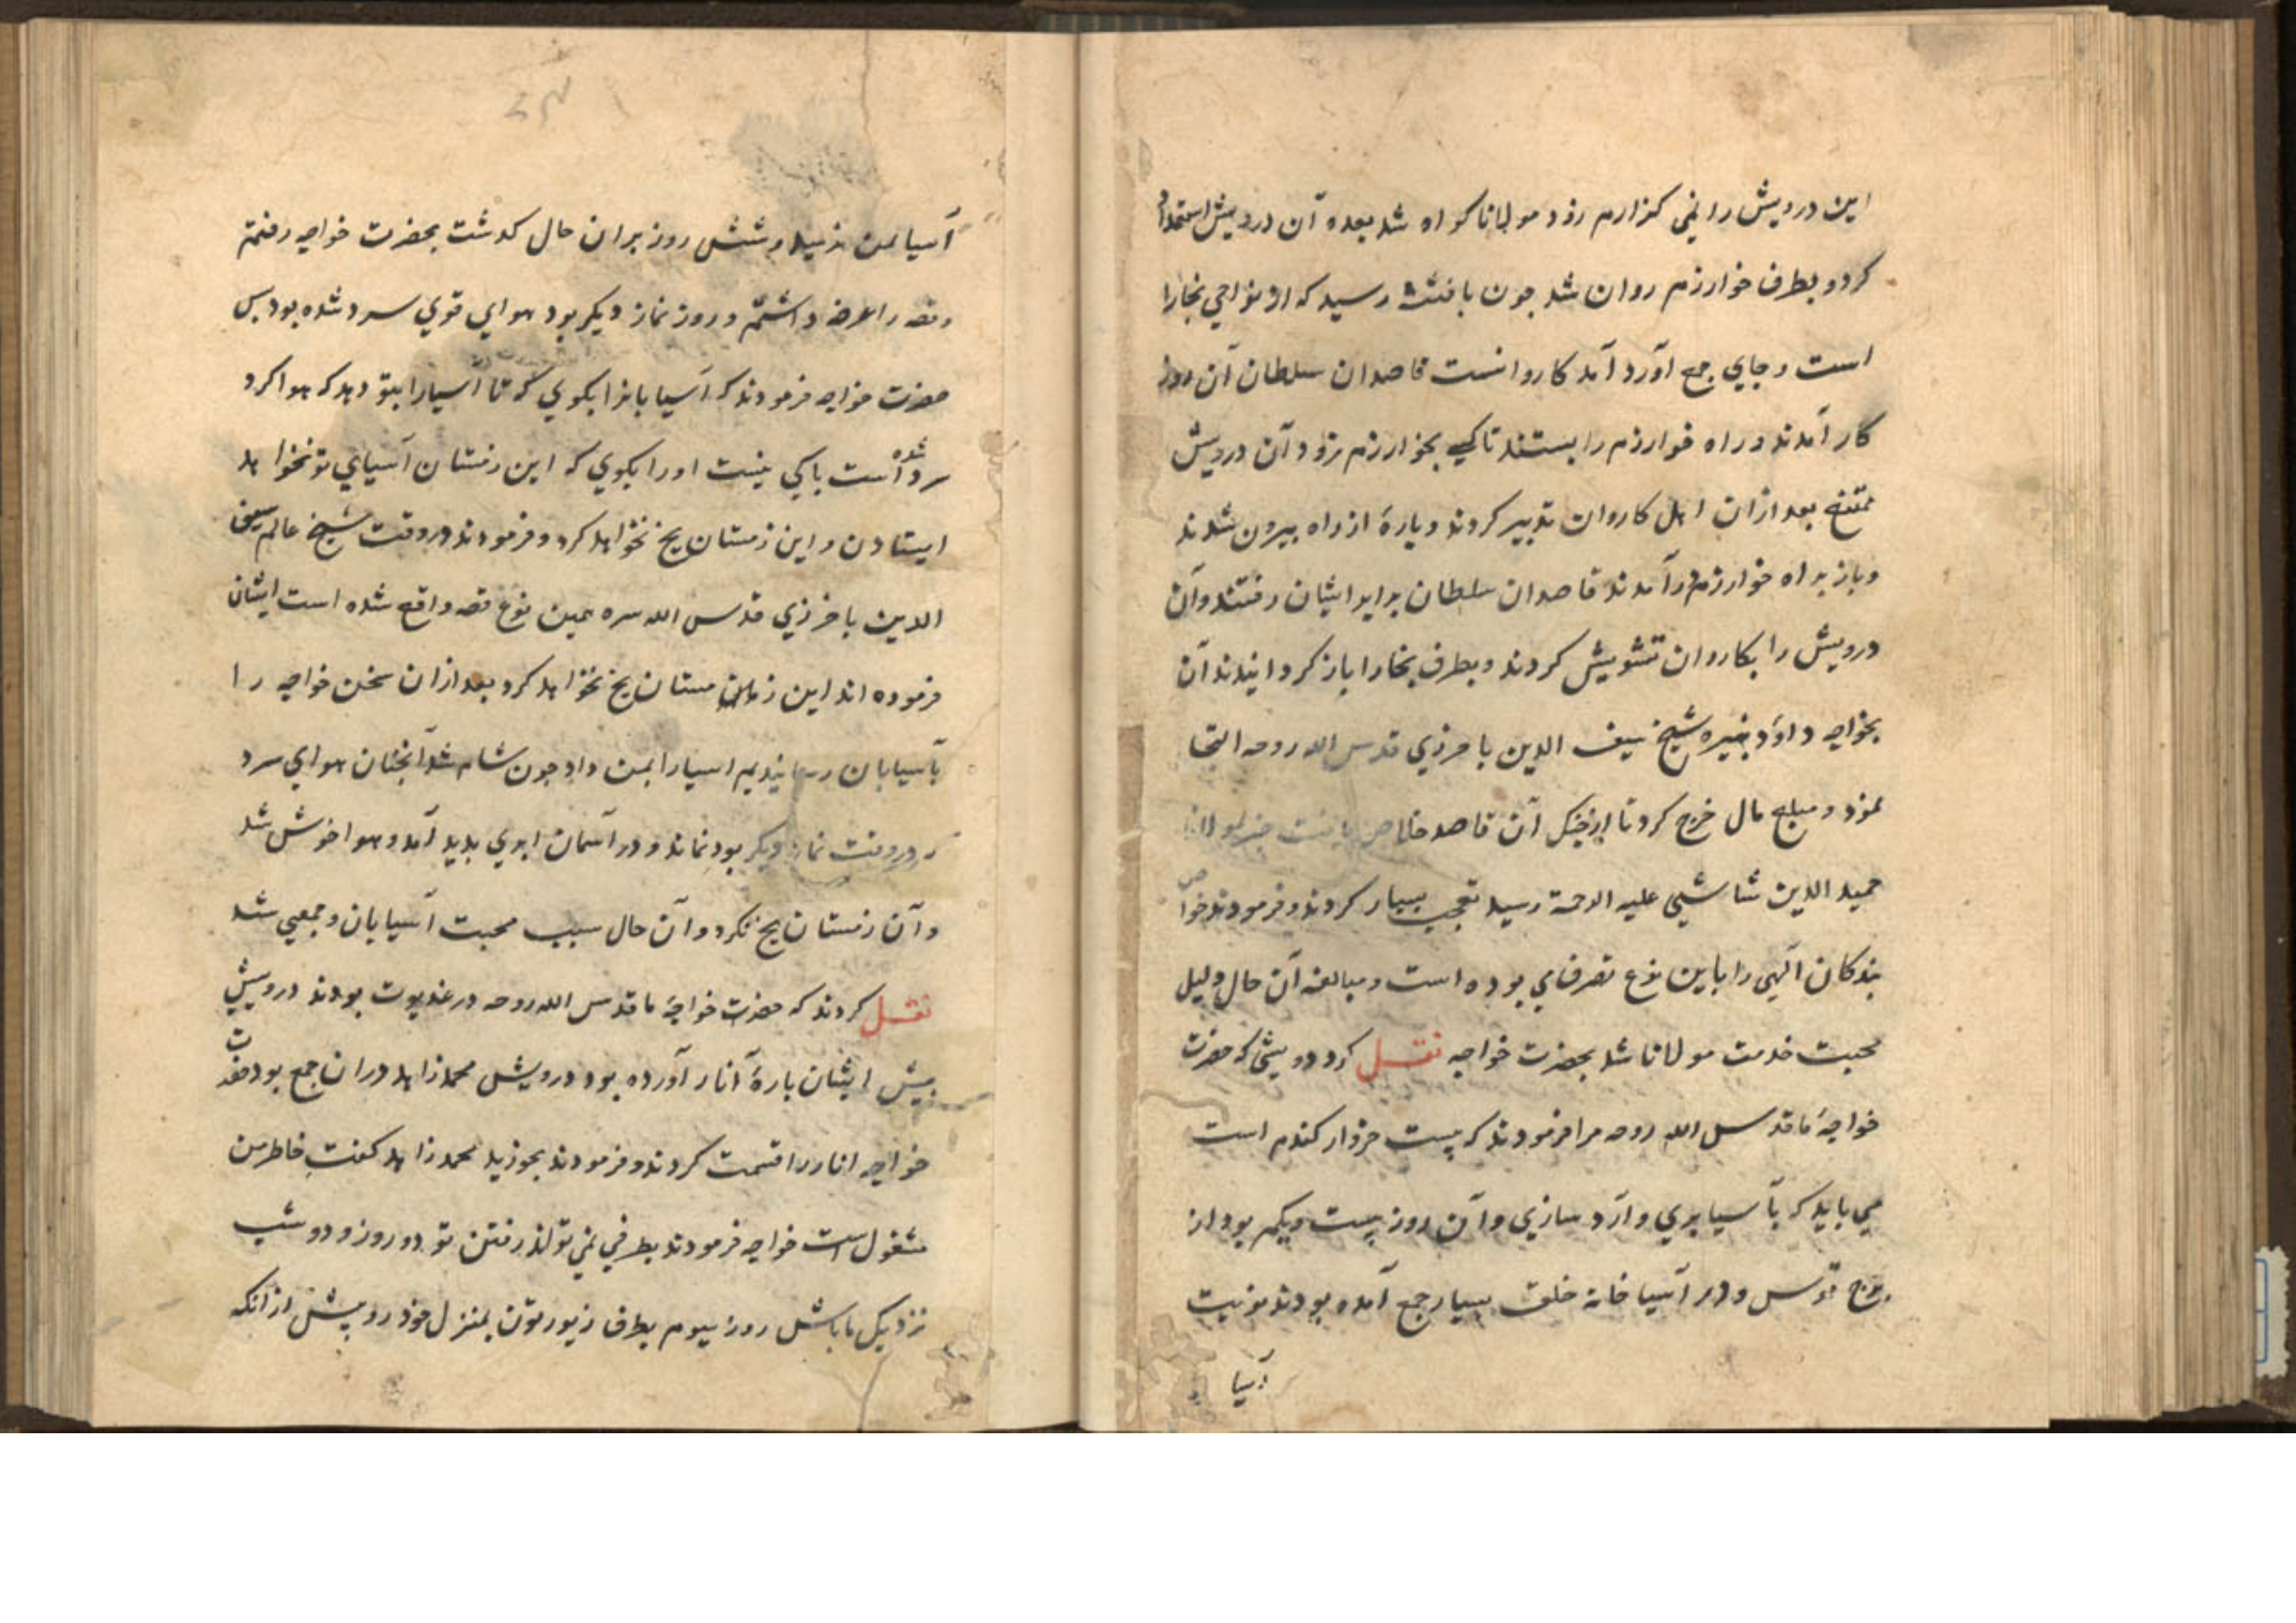 این درویش را نمی کزارم رود مولانا کواه شد بعده آن درویش استعداد
کرد و بطرف خوارزم روان شد جون با رسید که از نواحی بخارا
است و جای جمع آورد آمد کاروانست قاصدان سلطان آن روز
کار آمدند و راه خوارزم را بستند تا کسی بخوارزم نرود آن درویش
ممتنع بعد ازان اهل کاروان تدبیر کردند و پارهٔ از راه بیرون شدند
و باز براه خوارزم در آمدند قاصدان سلطان برابر ایشان رفتند و آن
درویش را بکاروان تشویش کردند و بطرف بخارا باز کردانیدند آن
بخواجه داود نبیره شیخ سیف الدین باخرزی قدس الله روحه التجا
نمود و مبلغ مال خرج کرد تا از جنک آن قاصد خلاص یافت خبر بمولانا
حمید الدین شاشی علیه الرحمة رسید تعجب بسیار کردند و فرمودند خواص
بندکان الهی را باین نوع تصرفای بوده است و مبالغه آن حال دلیل
محبت خدمت مولانا شد بحضرت خواجه نقل کرد درویشی که حضرت
خواجهٔ ما قدس الله روحه مرا فرمودند که بیست خروار کندم است
می باید که بآسیا بری و آرد سازی و آن روز بیست و یکم بود از
برج قوس و در آسیا خانه خلق بسیار جمع آمده بودند نوبت
آسیا
آسیا بمن نرسید و شش روز بران حال کدشت بحضرت خواجه رفتم
و قصه را عرضه داشتم و روز نماز دیکر بود هوای قوی سرد شده بود پس
حضرت خواجه فرمودند که آسیابانرا بکوی که تا آسیا را بتو دهد که هوا اکر
سرد شده است باکی نیست او را بکوی که این زمستان آسیای تو نخواهد
ایستادن و این زمستان یخ نخواهد کرد و فرمودند در وقت شیخ عالم سیف
الدین باخرزی قدس الله سره همین نوع قصه واقع شده است ایشان
فرموده اند این زمستان یخ نخواهد کرد بعد ازان سخن خواجه را
بآسیابان رسانیدیم اسیا را بمن داد جون شام شد آنجنان هوای سرد
که در وقت نماز دیکر بود نماند و در آسمان ابری بدید آمد و هوا خوش شد
و آن زمستان یخ نکرد و آن حال سبب محبت آسیابان و جمعی شد
نقل کردند که حضرت خواجهٔ ما قدس الله روحه در غدیوت بودند درویشی
پیش ایشان پارهٔ انار آورده بود درویش محمد زاهد دران جمع بود حضرت
خواجه انار را قسمت کردند و فرمودند بخوزید محمد زاهد کفت خاطر من
مشغول است خواجه فرمودند بطرفی نمی توان رفتن تو دو روز و دو شب
نزدیک ما باش روز سیوم بطرف زیورتون بمنزل خود رو پیش از انکه